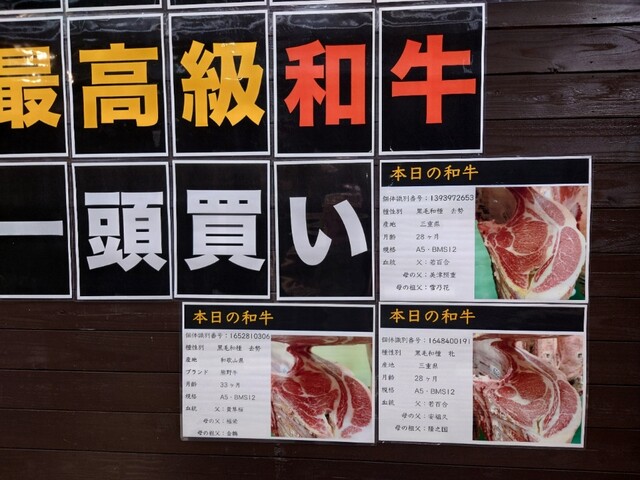 最高級和牛
一頭買い
本日の和牛
個体識別番号：1393972653
種性別 黒毛和種 去勢
産地 三重県
月齢 28ヶ月
規格 A5・BMS12
血統 父：若百合
母の父：美津照重
母の祖父：雪乃花
本日の和牛
個体識別番号：1652810306
種性別 黒毛和種 去勢
産地 和歌山県
ブランド 熊野牛
月齢 33ヶ月
規格 A5・BMS12
血統 父：貴隼桜
母の父：福栄
母の祖父：金鶴
本日の和牛
個体識別番号：1648400191
種性別 黒毛和種 牝
産地 三重県
月齢 28ヶ月
規格 A5・BMS12
血統 父：若百合
母の父：安福久
母の祖父：隆之国